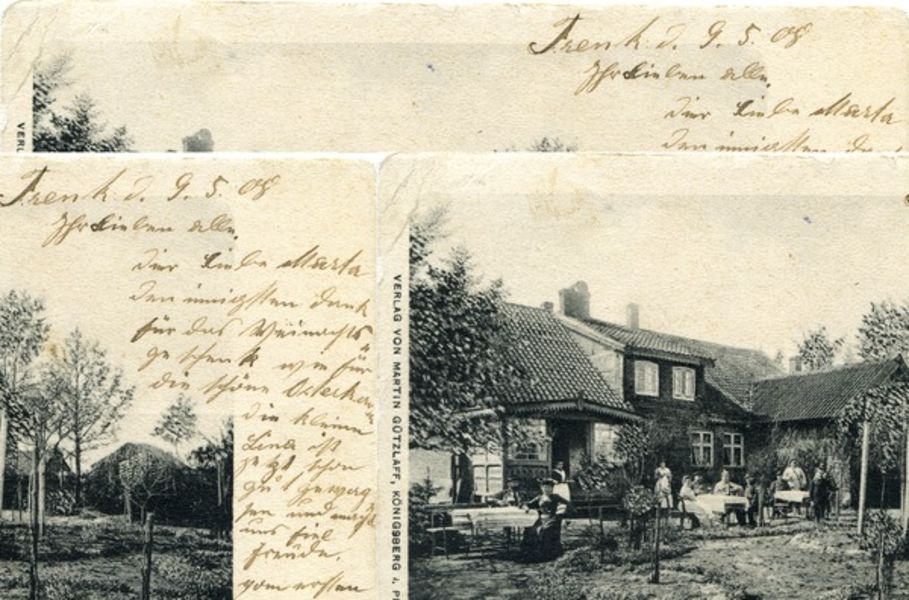 Frenk. d. 9. 5. 08
Ihr Lieben alle.
Dir Liebe Marta
den innigsten
VERLAG
Frenk. d. 9. 5. 08
Ihr Lieben alle.
Dir Liebe Marta
den innigsten Dank
für das Weinachts
geschenk wie für
die schöne
die kleine
Lina ist
jetzt schon
gut gewag
sen und macht
uns fiel
Freude.
vom ersten
VERLAG VON MARTIN GÜTZLAFF, KÖNIGSBERG i. P